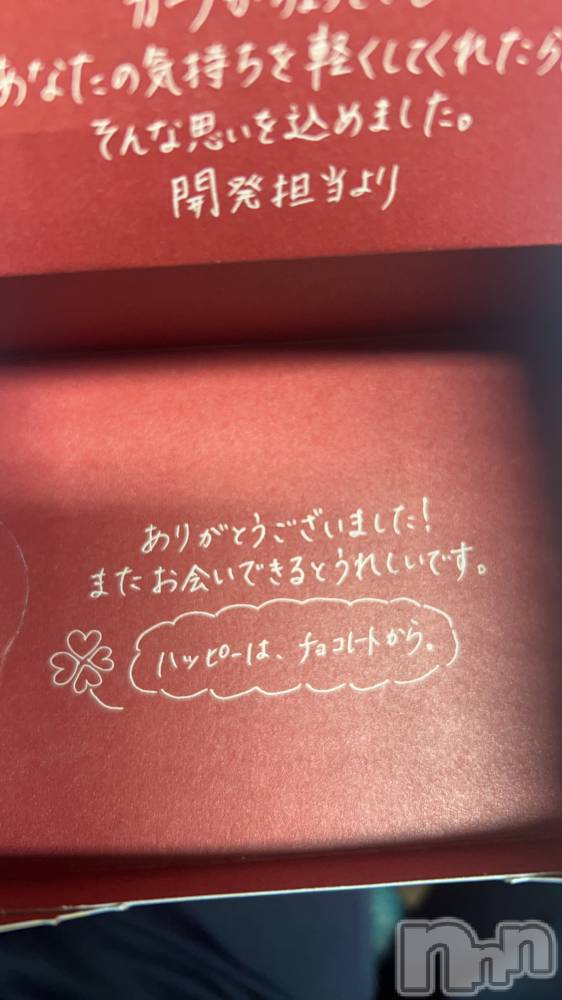 あなたの気持ちを軽くしてくれたら
そんな思いを込めました。
開発担当より
ありがとうございました!
またお会いできるとうれしいです。
ハッピーは、チョコレートから。
nnn